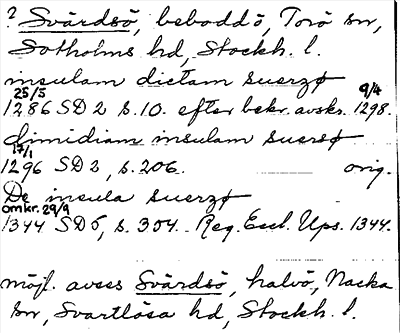 ? Svärdsö, bebodd ö, Torö sn,
Sotholms hd, Stockh. l.
insulam dictam suerzø
25/5 9/4
1286 SD 2 s. 10. efter bekr. avskr. 1298.
dimidiam insulam suersø
17/1
1296 SD 2, s. 206. orig.
De insula suerzø
omkr. 29/9
1344 SD 5, s. 304. Reg. Eccl. Ups. 1344.
möjl. avses Svärdsö, halvö, Nacka
sn, Svartlösa hd, Stockh. l.